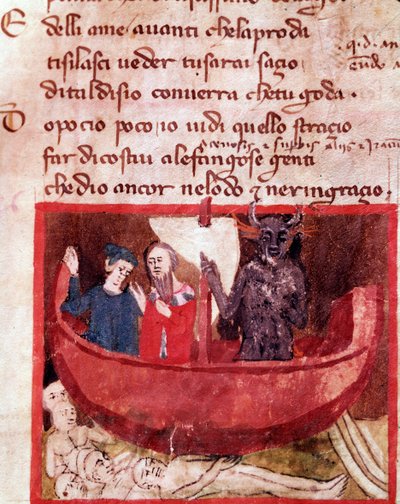 E delli ame auanti chelaproda
tisilasci ueder tusarai sagio
dital disio conuerra chetu goda.
D opocio poco io uidi quello stragio
far dicostui alefangose genti
che dio ancor nelodo ⁊ neringragio.